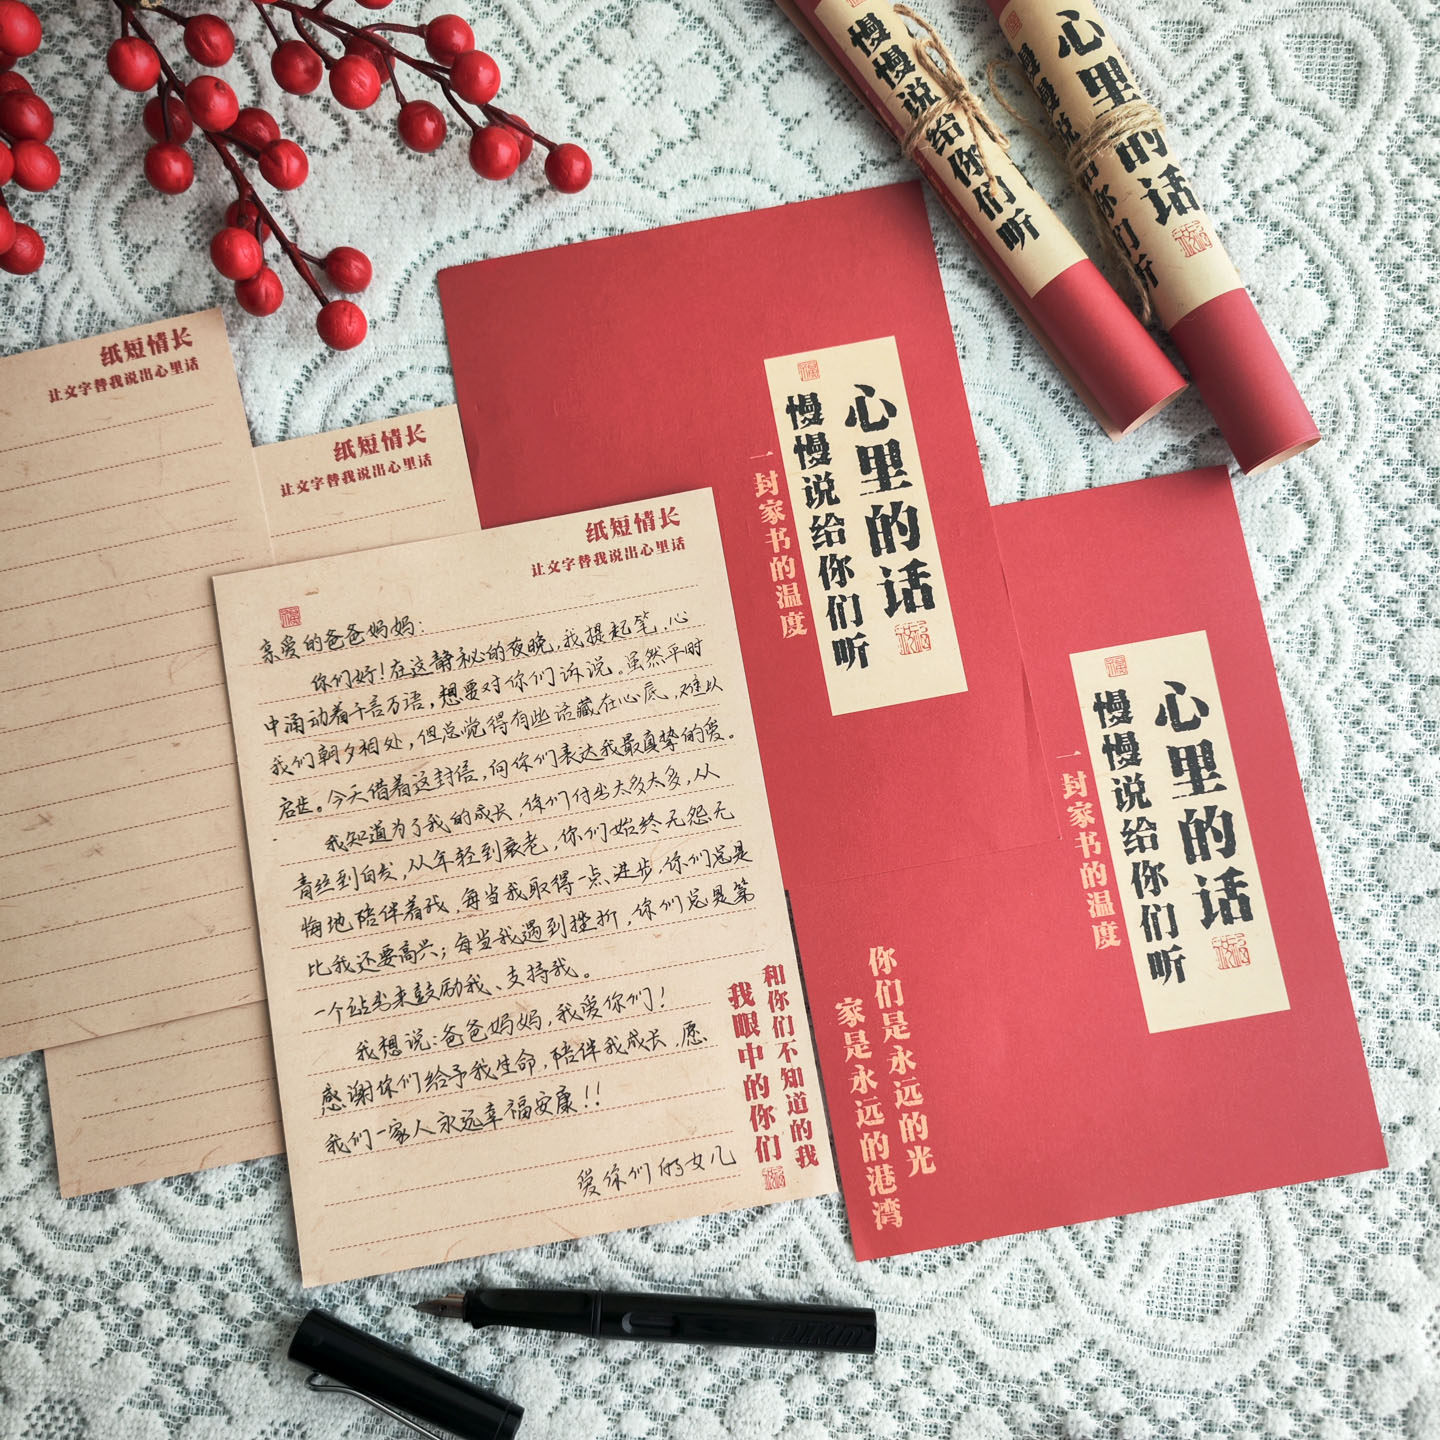 慢慢说给你们听
心里的话
慢慢说给你们听
纸短情长
让文字替我说出心里话
纸短情长
让文字替我说出心里话
心里的话
慢慢说给你们听
一封家书的温度
纸短情长
让文字替我说出心里话
亲爱的爸爸妈妈：
你们好！在这静秘的夜晚，我提起笔，心
中涌动着千言万语，想要对你们诉说。虽然平时
我们朝夕相处，但总觉得有些话藏在心底，难以
启齿。今天借着这封信，向你们表达我最真挚的爱。
我知道为了我的成长，你们付出太多太多，从
青丝到白发，从年轻到衰老，你们始终无怨无
悔地陪伴着我，每当我取得一点进步，你们总是
比我还要高兴；每当我遇到挫折，你们总是第
一个站出来鼓励我、支持我。
我想说：爸爸妈妈，我爱你们！
感谢你们给予我生命，陪伴我成长，愿
我们一家人永远幸福安康！！
爱你们的女儿
和你们不知道的我
我眼中的你们
心里的话
慢慢说给你们听
一封家书的温度
你们是永远的光
家是永远的港湾